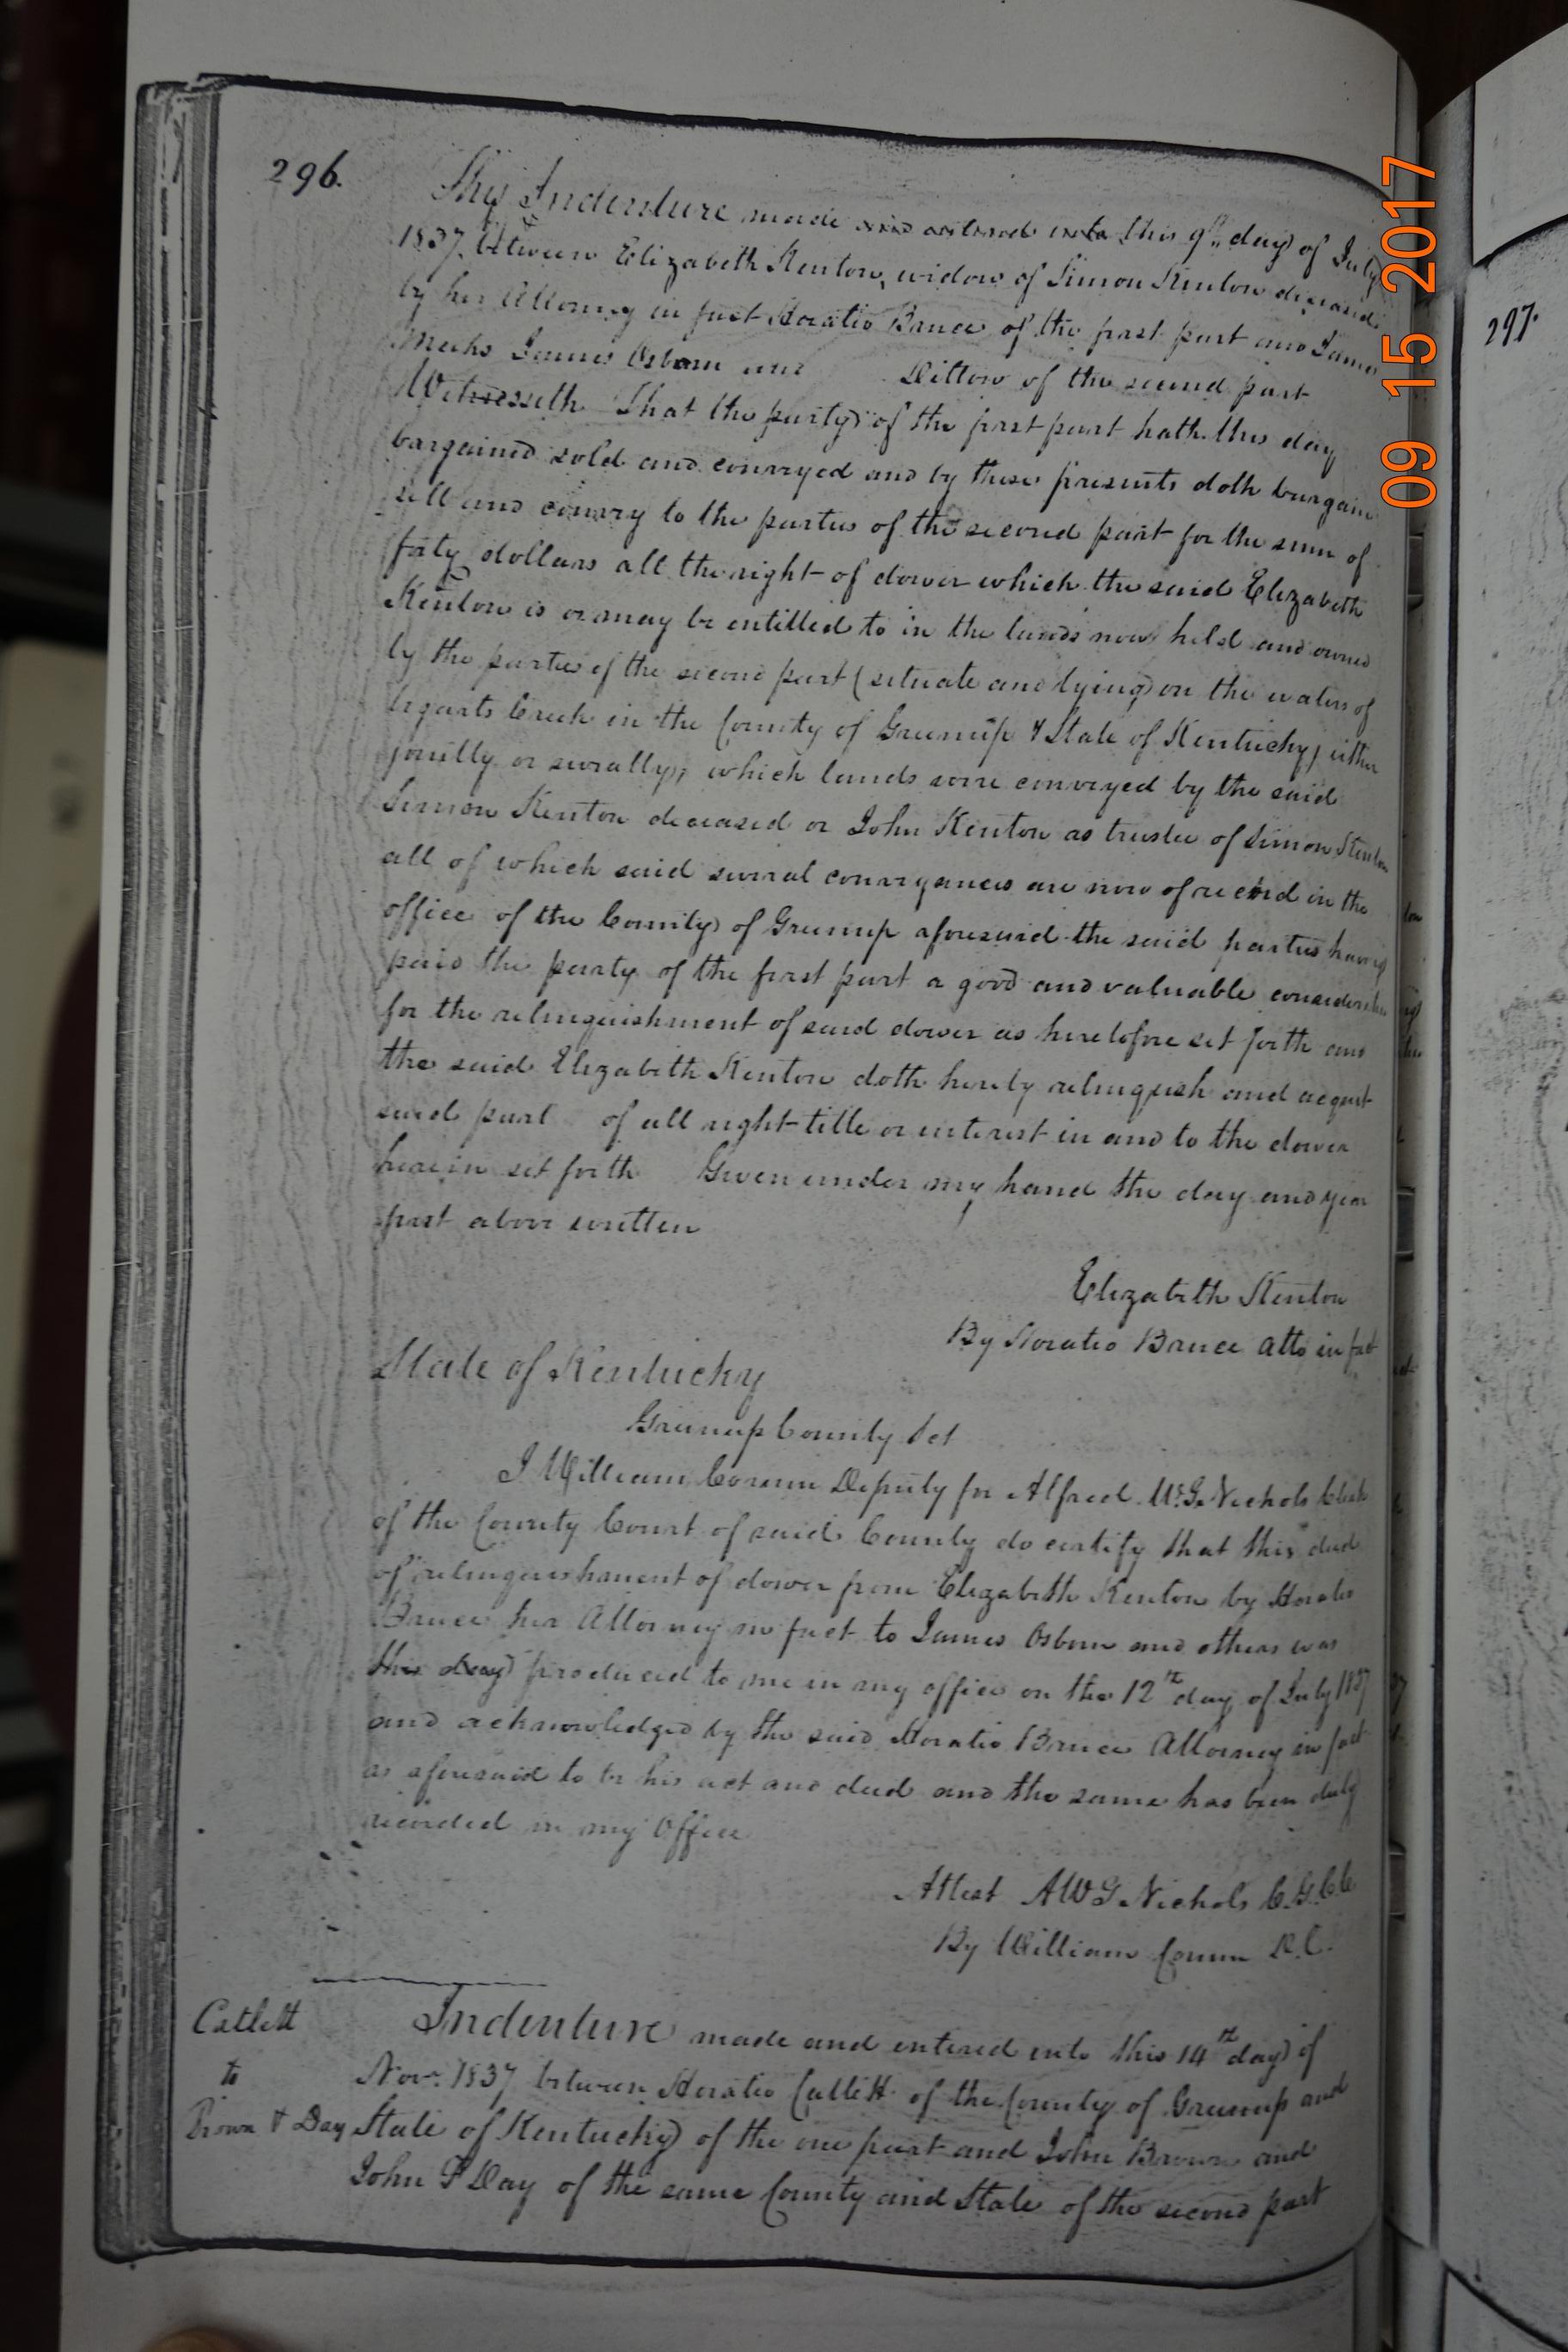 296.
This Indenture made and entered into this 9th day of July
1837. Between Elizabeth Kenton, widow of Simon Kenton deceased
by her Attorney in fact Horatio Bruce of the first part and James
Meeks James Osborn and Dittow of the second part
Witnesseth That the party of the first part hath this day
bargained sold and conveyed and by these presents doth bargain
sell and convey to the parties of the second part for the sum of
forty dollars all the right of dower which the said Elizabeth
Kenton is or may be entitled to in the lands now held and owned
by the parties of the second part (situate and lying on the waters of
Tygarts Creek in the County of Greenup & State of Kentucky) either
jointly or severally, which lands were conveyed by the said
Simon Kenton deceased or John Kenton as trustee of Simon Kenton
all of which said several conveyances are now of record in the
office of the County of Greenup aforesaid the said parties having
paid the party of the first part a good and valuable consideration
for the relinquishment of said dower as heretofore set forth and
the said Elizabeth Kenton doth hereby relinquish and acquit
said part of all right title or interest in and to the dower
herein set forth Given under my hand the day and year
first above written
Elizabeth Kenton
By Horatio Bruce atto in fact
State of Kentucky
Greenup County Sct
I William Corum Deputy for Alfred W. G. Nichols Clerk
of the County Court of said County do certify that this deed
of relinquishment of dower from Elizabeth Kenton by Horatio
Bruce her Attorney in fact to James Osborn and others was
this day produced to me in my office on the 12th day of July 1837
and acknowledged by the said Horatio Bruce Attorney in fact
as aforesaid to be his act and deed and the same has been duly
recorded in my Office
Attest AWG Nichols C.G.C.C
By William Corum D.C.
Catlett
to
Brown & Day
Indenture made and entered into this 14th day of
Nov. 1837 between Horatio Catlett of the County of Greenup and
State of Kentucky of the one part and John Brown and
John P Day of the same County and State of the second part
297.
09 15 2017